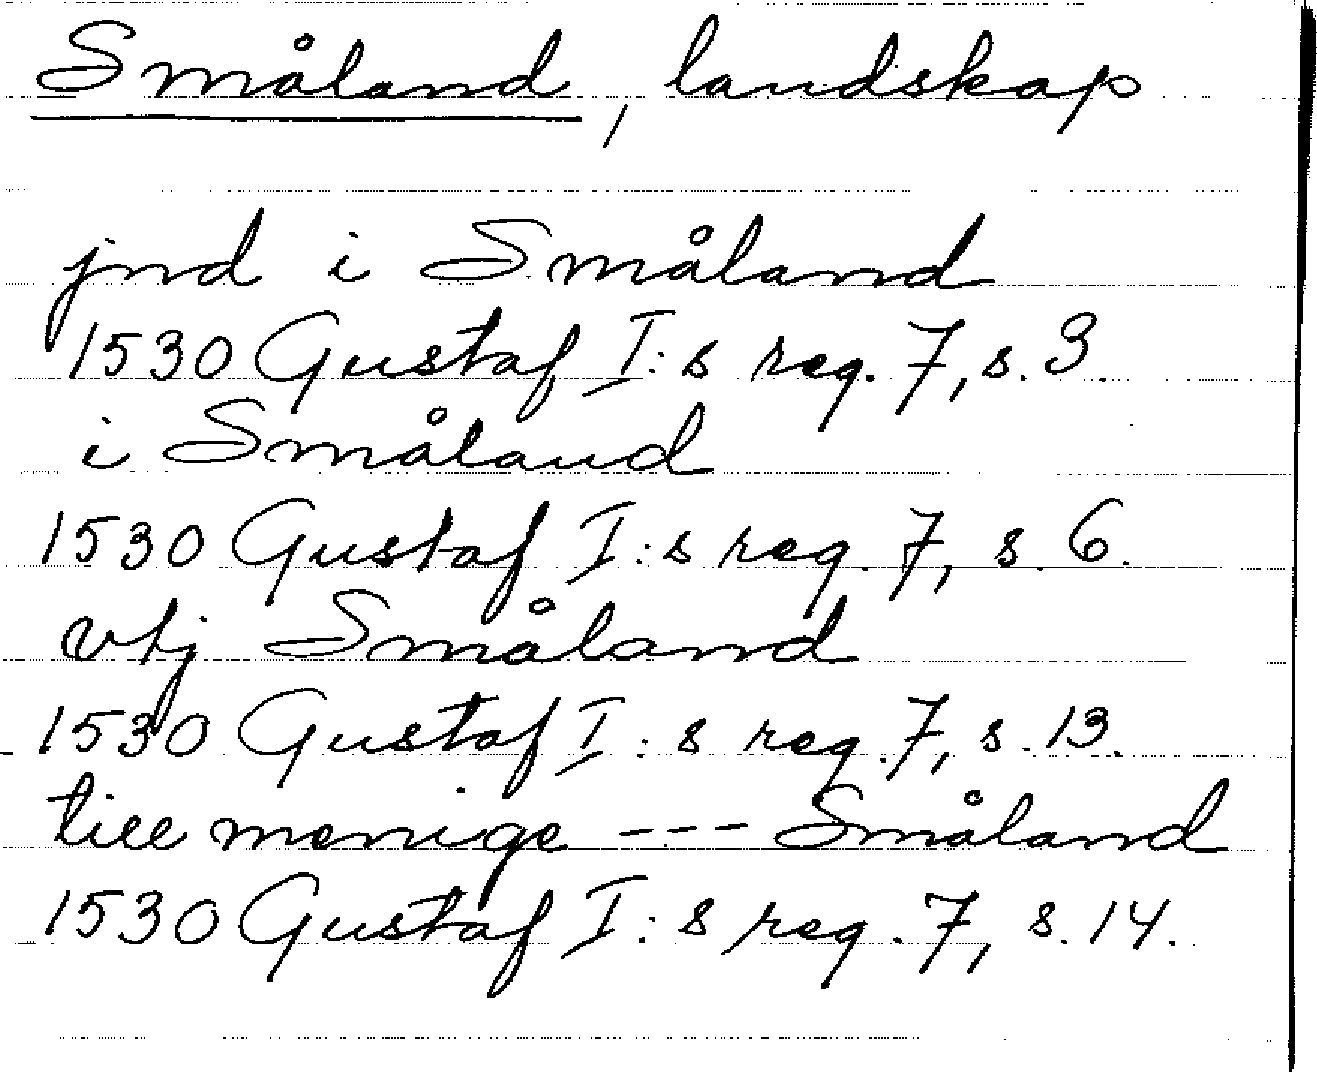 Småland, landskap
jnd i Småland
1530 Gustaf I:s reg. 7, s. 3.
i Småland
1530 Gustaf I:s reg. 7, s. 6.
vtj Småland
1530 Gustaf I:s reg. 7, s. 13.
till menige --- Småland
1530 Gustaf I:s reg. 7, s. 14.